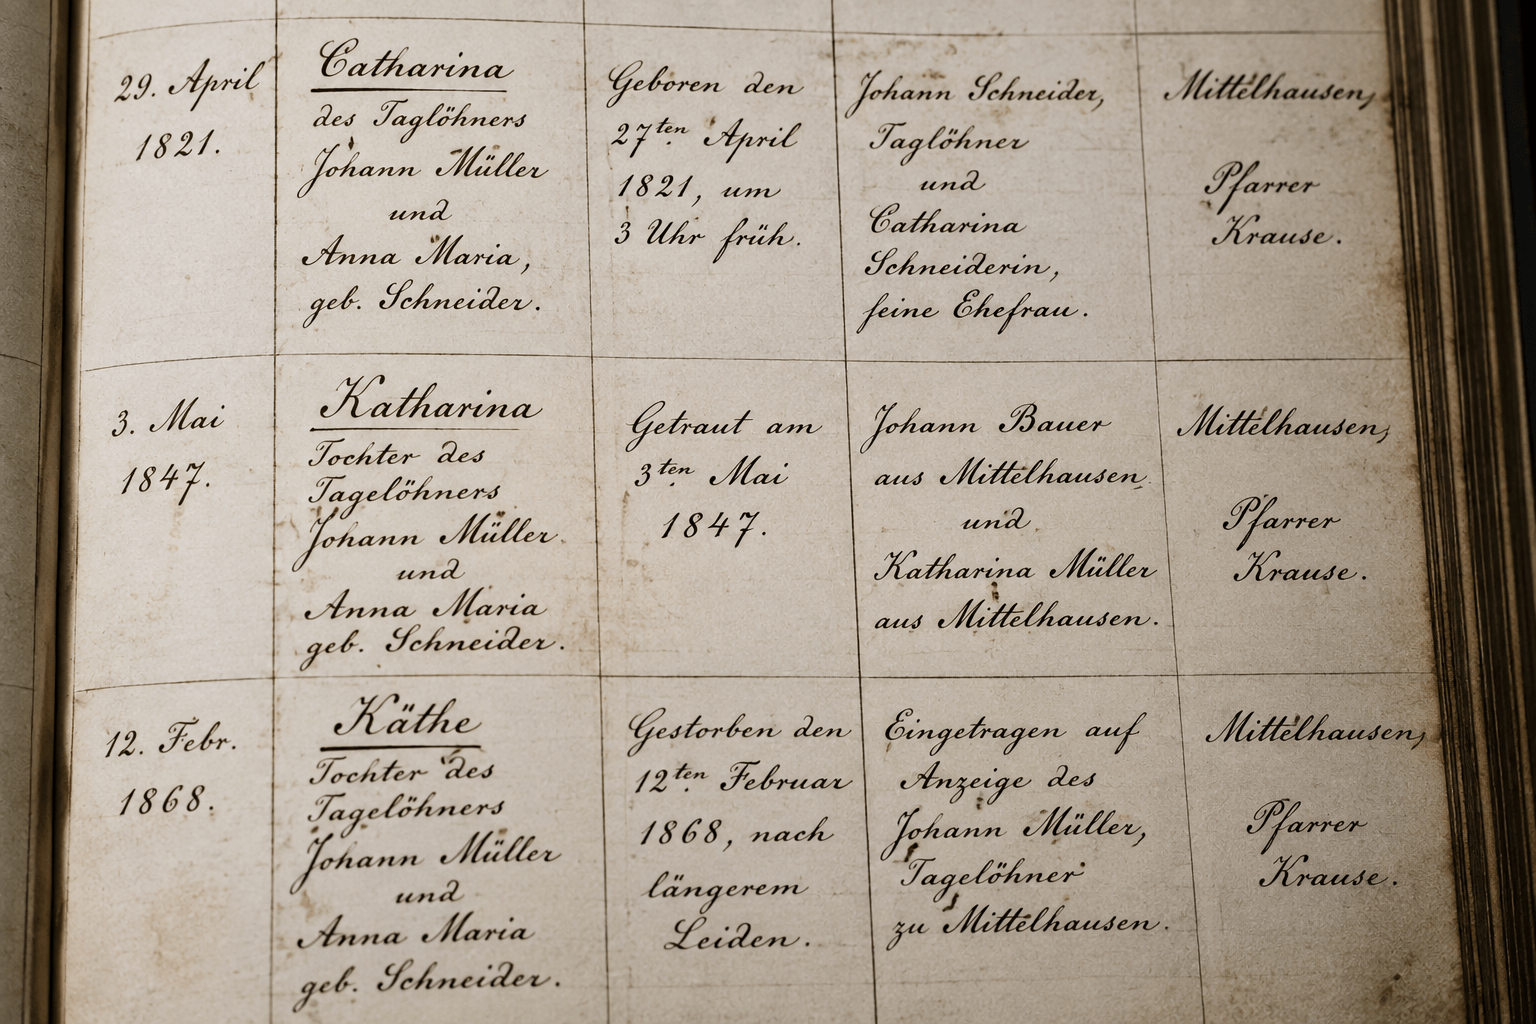 29. April
1821.
Catharina
des Taglöhners
Johann Müller
und
Anna Maria,
geb. Schneider.
Geboren den
27ten April
1821, um
3 Uhr früh.
Johann Schneider,
Taglöhner
und
Catharina
Schneiderin,
seine Ehefrau.
Mittelhausen,
Pfarrer
Krause.
3. Mai
1847.
Katharina
Tochter des
Tagelöhners
Johann Müller
und
Anna Maria
geb. Schneider.
Getraut am
3ten Mai
1847.
Johann Bauer
aus Mittelhausen
und
Katharina Müller
aus Mittelhausen.
Mittelhausen,
Pfarrer
Krause.
12. Febr.
1868.
Käthe
Tochter des
Tagelöhners
Johann Müller
und
Anna Maria
geb. Schneider.
Gestorben den
12ten Februar
1868, nach
längerem
Leiden.
Eingetragen auf
Anzeige des
Johann Müller,
Tagelöhner
zu Mittelhausen.
Mittelhausen,
Pfarrer
Krause.